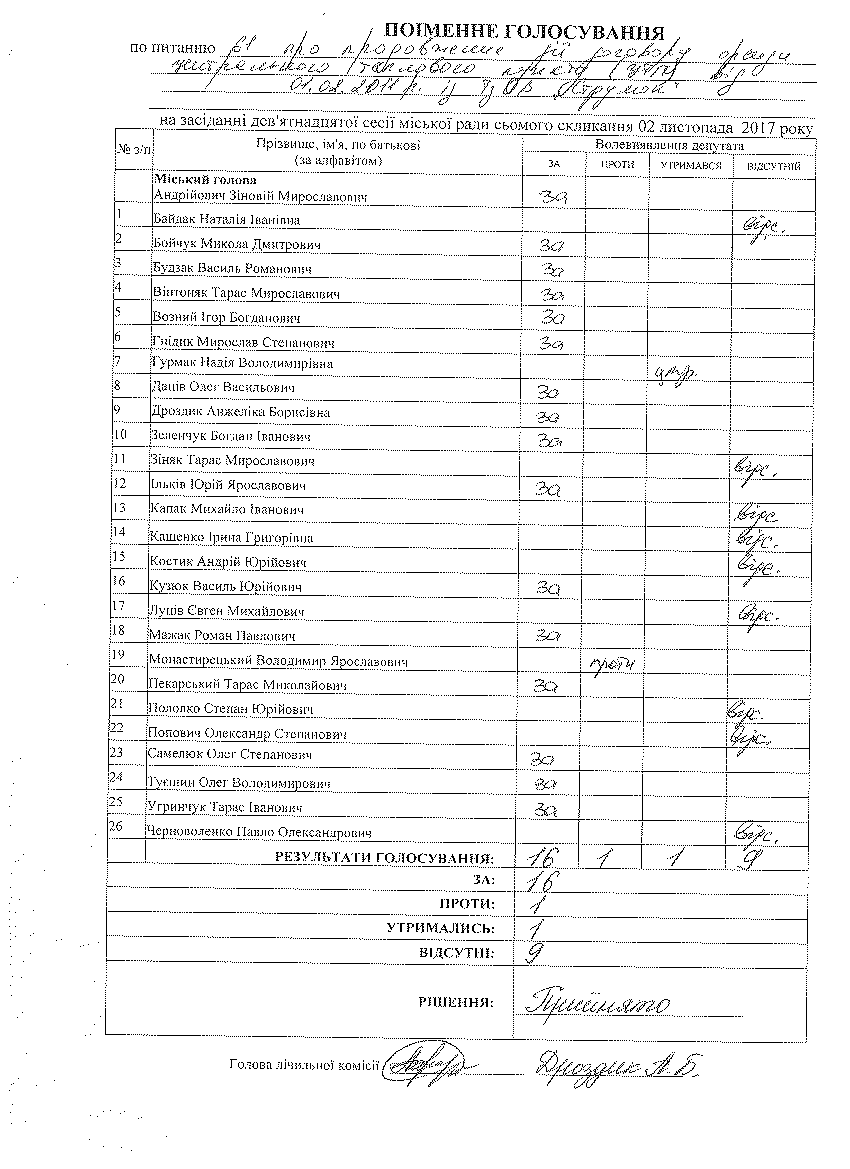 ПОІМЕННЕ ГОЛОСУВАННЯ
по питанню 61 про продовження дії договору оренди
центрального теплового пункта (ЦТП) від
01.08.2012 р. з ТзОВ "Струмок"
на засіданні дев'ятнадцятої сесії міської ради сьомого скликання 02 листопада 2017 року
№ з/п Прізвище, ім'я, по батькові (за алфавітом) Волевиявлення депутата
ЗА ПРОТИ УТРИМАВСЯ ВІДСУТНІЙ
Міський голова
Андрійович Зіновій Мирославович за
1 Байдак Наталія Іванівна відс.
2 Бойчук Микола Дмитрович за
3 Будзак Василь Романович за
4 Вінтоняк Тарас Мирославович за
5 Возний Ігор Богданович за
6 Гнідик Мирослав Степанович за
7 Гурмак Надія Володимирівна утр.
8 Даців Олег Васильович за
9 Дроздик Анжеліка Борисівна за
10 Зеленчук Богдан Іванович за
11 Зіняк Тарас Мирославович відс.
12 Ільків Юрій Ярославович за
13 Капак Михайло Іванович відс
14 Кащенко Ірина Григорівна відс.
15 Костик Андрій Юрійович відс.
16 Кузюк Василь Юрійович за
17 Луців Євген Михайлович відс.
18 Мажак Роман Павлович за
19 Монастирецький Володимир Ярославович проти
20 Пекарський Тарас Миколайович за
21 Пололко Степан Юрійович відс.
22 Попович Олександр Степанович відс.
23 Самелюк Олег Степанович за
24 Туєшин Олег Володимирович за
25 Угринчук Тарас Іванович за
26 Черноволенко Павло Олександрович відс.
РЕЗУЛЬТАТИ ГОЛОСУВАННЯ: 16 1 1 9
ЗА: 16
ПРОТИ: 1
УТРИМАЛИСЬ: 1
ВІДСУТНІ: 9
РІШЕННЯ: Прийнято
Голова лічильної комісії Дроздик А.Б.